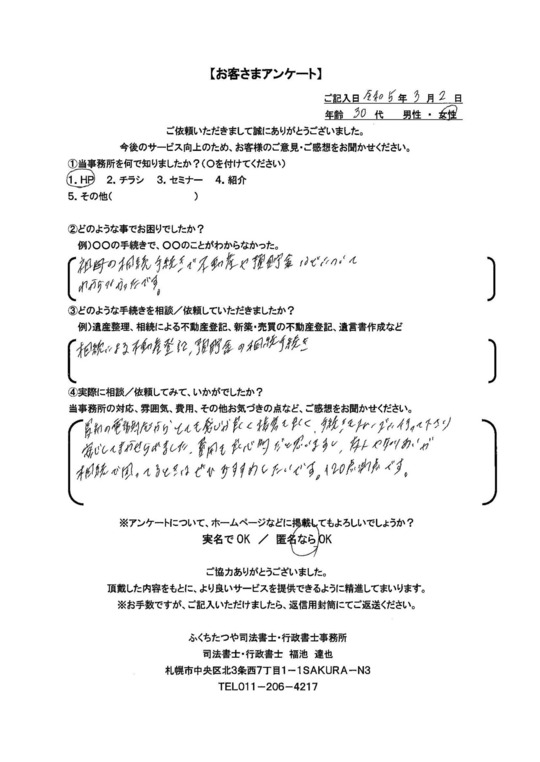 【お客さまアンケート】
ご記入日 令和5年3月2日
年齢 30代 男性・女性
ご依頼いただきまして誠にありがとうございました。
今後のサービス向上のため、お客様のご意見・ご感想をお聞かせください。
①当事務所を何で知りましたか?(○を付けてください)
1.HP 2.チラシ 3.セミナー 4.紹介
5.その他( )
②どのような事でお困りでしたか?
例)○○の手続きで、○○のことがわからなかった。
祖母の相続手続きで不動産や預貯金などについて
わからなかったです。
③どのような手続を相談/依頼していただきましたか?
例)遺産整理、相続による不動産登記、新築・売買の不動産登記、遺言書作成など
相続による不動産登記、預貯金の相続手続き
④実際に相談/依頼してみて、いかがでしたか?
当事務所の対応、雰囲気、費用、その他お気づきの点など、ご感想をお聞かせください。
最初の電話対応からとても感じが良く 良く、手続きもスムーズに行って下さり
安心してまかせられました。費用も良心的だと思いますし、友人や知りあいが
相続で困ってるときはぜひおすすめしたいです。120点満点です。
※アンケートについて、ホームページなどに掲載してもよろしいでしょうか?
実名でOK / 匿名ならOK
ご協力ありがとうございました。
頂戴した内容をもとに、より良いサービスを提供できるように精進してまいります。
※お手数ですが、ご記入いただけましたら、返信用封筒にてご返送ください。
ふくちたつや司法書士・行政書士事務所
司法書士・行政書士 福池 達也
札幌市中央区北3条西7丁目1-1SAKURA-N3
TEL011-206-4217